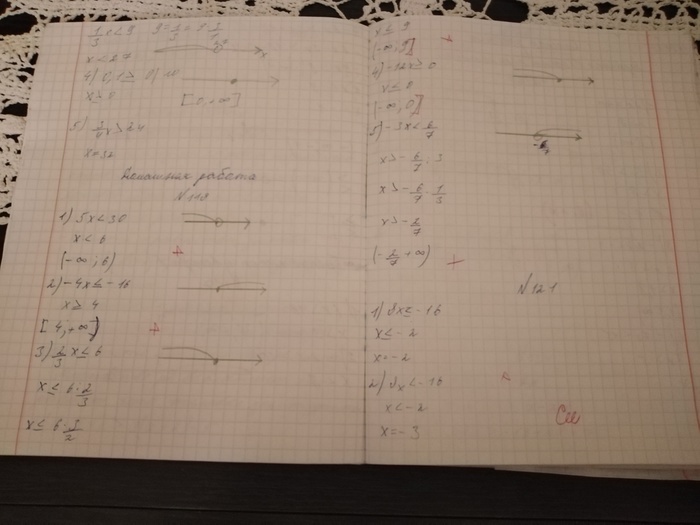 x < 27
x ≥ 0
[0, +∞]
5) 3/4 x ≥ 24
x = 32
Домашняя работа
N 118
1) 5x < 30
x < 6
(-∞; 6)
2) -4x ≤ -16
x ≥ 4
[4, +∞)
3) 2/3 x ≤ 6
x ≤ 6 : 2/3
x ≤ 6 · 3/2
x ≤ 9
(-∞, 9]
4) -12x ≥ 0
x ≤ 0
(-∞, 0]
5) -3x < 6/7
x > -6/7 : 3
x > -6/7 · 1/3
x > -2/7
(-2/7 +∞)
N 121
1) 8x ≤ -16
x ≤ -2
x = -2
2) 8x < -16
x < -2
x = -3
См